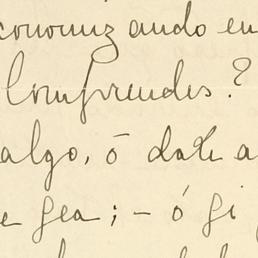 conomizando en
Comprendes?
algo, ó date a
e gea; - ó gi